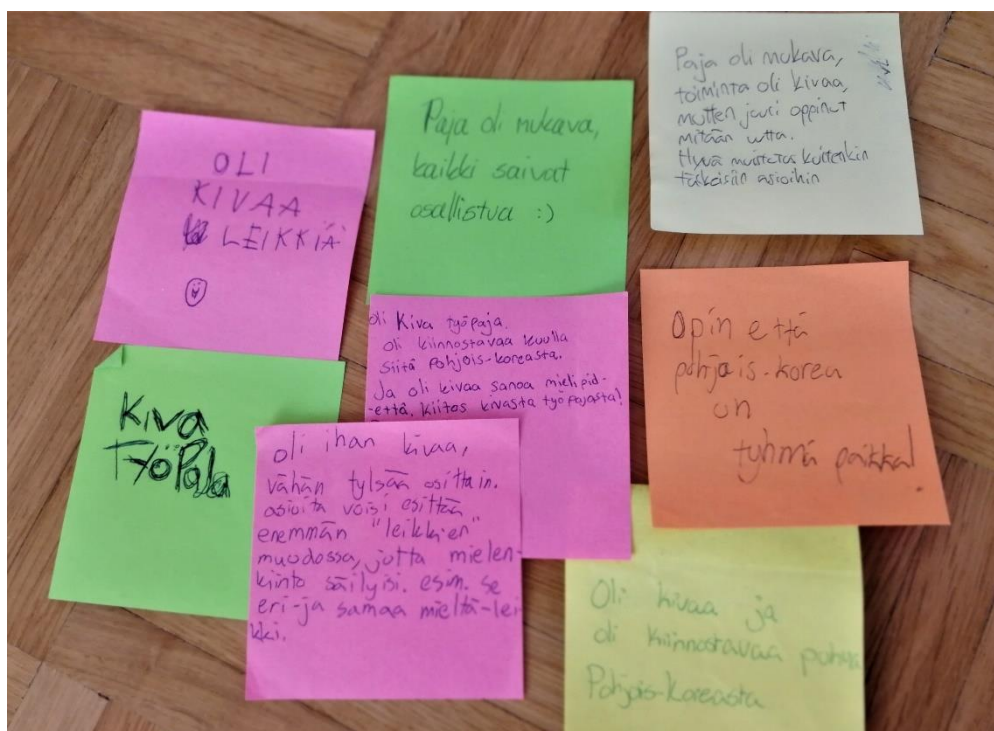 OLI
KIVAA
LEIKKIÄ
Paja oli mukava,
kaikki saivat
osallistua :)
Paja oli mukava,
toiminta oli kivaa,
mutten juuri oppinut
mitään uutta.
Hyvä muistutus kuitenkin
tärkeisiin asioihin
oli Kiva työpaja.
oli kiinnostavaa kuulla
siitä Pohjois-koreasta.
Ja oli kivaa sanoa mielipid-
-että. Kiitos kivasta työpajasta!
Opin että
pohjois-korea
on
tyhmä paikka!
Kiva
TYÖPaJa
oli ihan kivaa,
vähän tylsää osittain.
asioita voisi esittää
enemmän "leikkien"
muodossa, jotta mielen-
kiinto säilyisi. esim. se
eri-ja samaa mieltä-lei-
kki.
Oli kivaa ja
oli kiinnostavaa
Pohjois-Koreasta